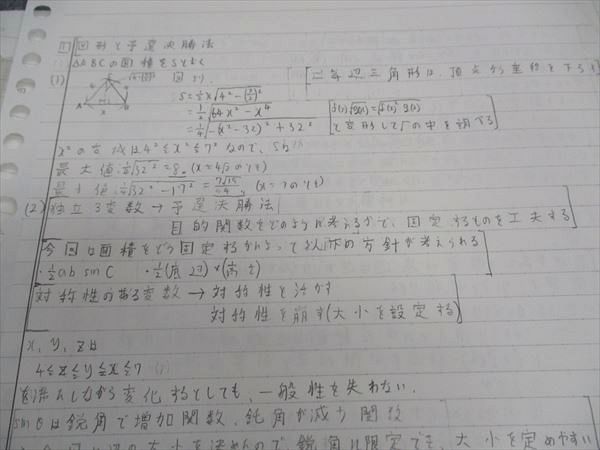 1 図形と予選決勝法
△ABCの面積をSとおく
(1) 図より、
[二等辺三角形は、頂点から垂線を下ろす]
S = 1/2 x √(4² - (x/2)²)
= 1/4 √(64x² - x⁴)
= 1/4 √(-(x² - 32)² + 32²)
[f(x)√g(x) = √(f(x)² g(x)) と変形して√の中を調べる]
x²の変域は4² ≤ x² ≤ 7²なので、Sの
最大値 1/4 √32² = 8 (x = 4√2のとき)
最小値 1/4 √(32² - 17²) = 7√15/4 (x = 7のとき)
(2) 独立3変数→予選決勝法
目的関数をどのように考えるかで、固定するものを工夫する]
今回は面積をどう固定するかによって以下の方針が考えられる
・1/2 ab sin C ・1/2 (底辺)×(高さ)
対称性のある変数→対称性を活かす
対称性を崩す(大小を設定する)]
x, y, zは
4 ≤ z ≤ y ≤ x ≤ 7
を満たしながら変化するとしても、一般性を失わない.
sin θは鋭角で増加関数、鈍角が減少関数
の大小を決めたので、鋭角に限定でき、大小を定めやすい